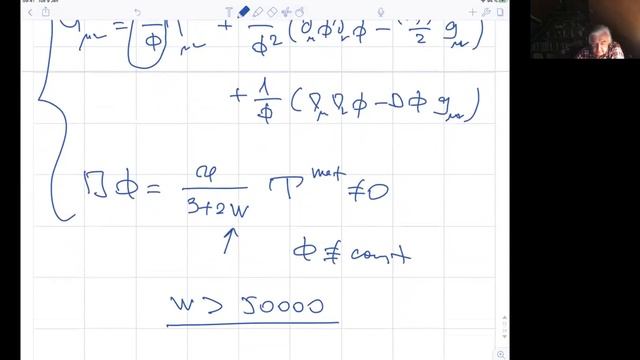 G_μν = ( /Φ) T_μν + /Φ² (∂_μΦ∂_νΦ − /2 g_μν)
+ 1/Φ (∇_μ∇_νΦ − □Φ g_μν)
□Φ = /(3+2W) T^mat ≠ 0
↑
Φ ≠ const
W > 50000